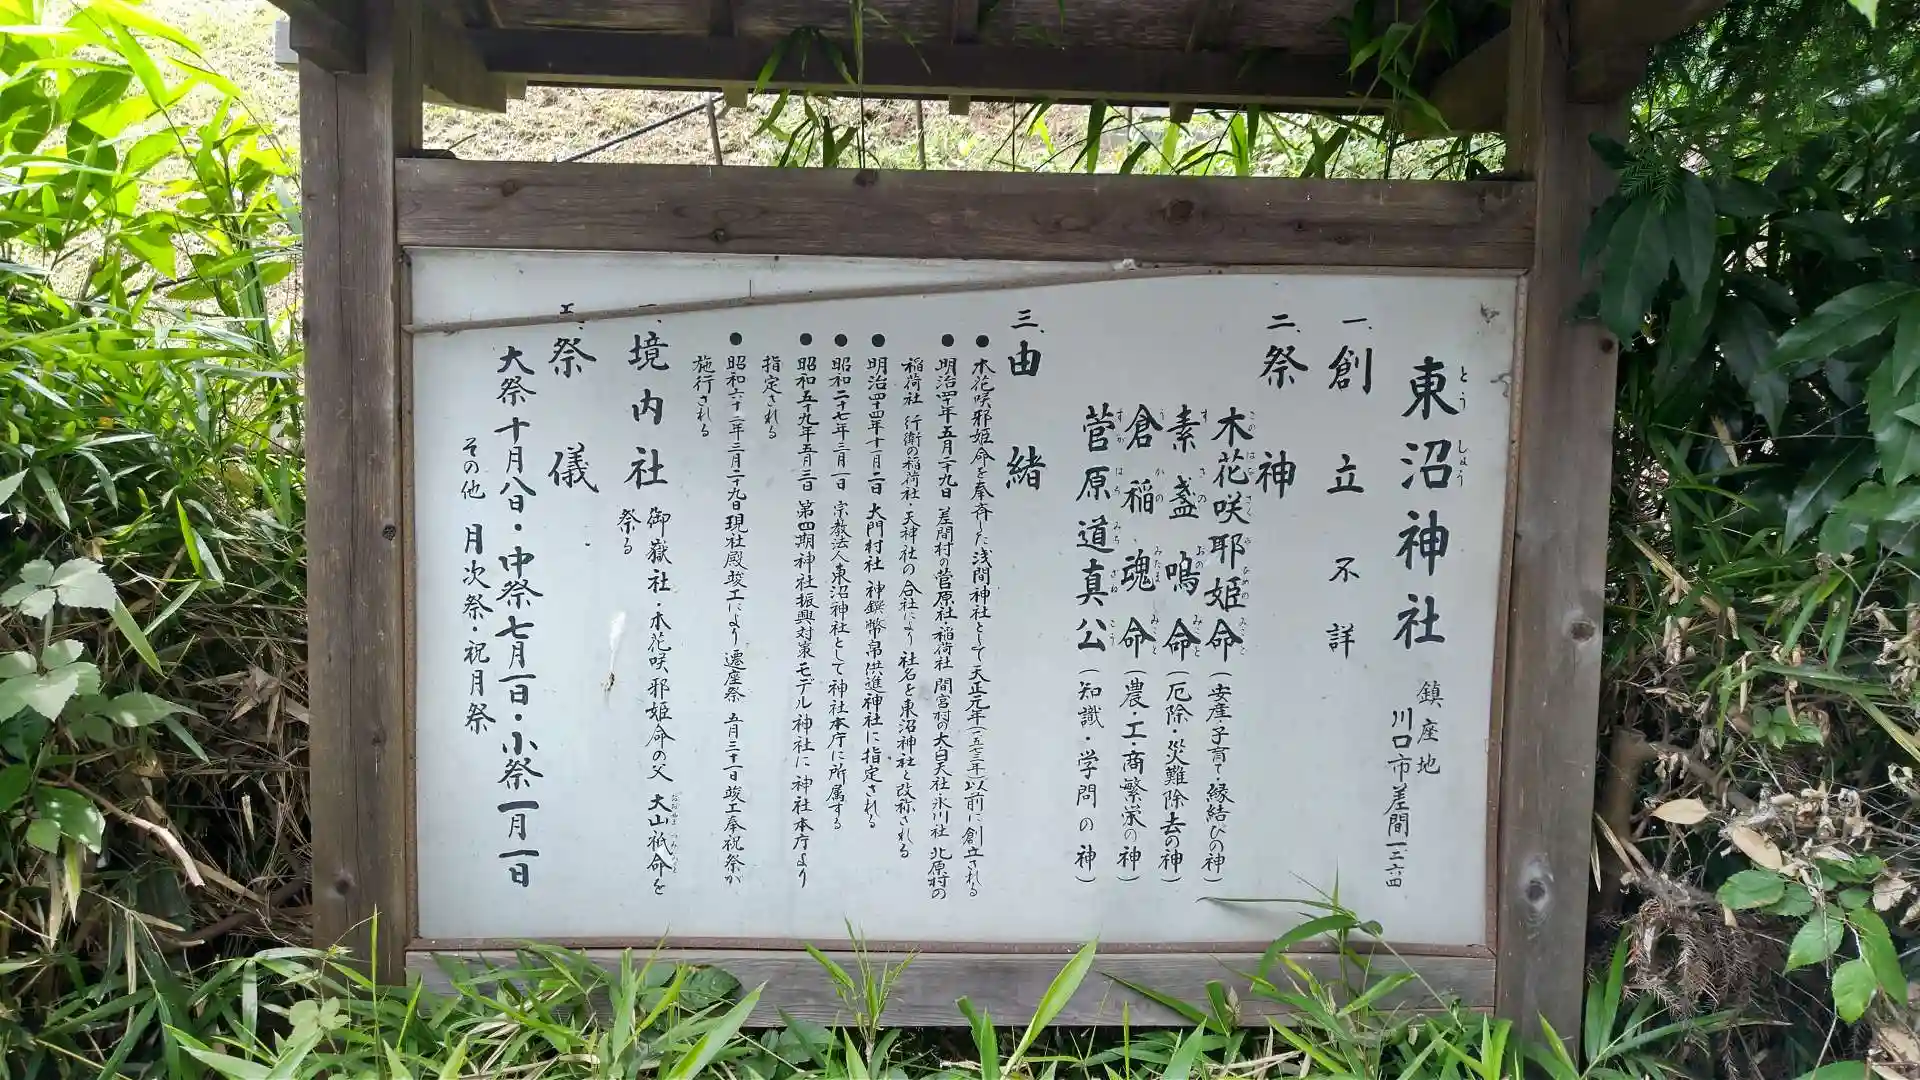 東沼神社
とう しょう
鎮座地
川口市差間一三六四
一、創立不詳
二、祭神
木花咲耶姫命(安産・子育て・縁結びの神)
素盞嗚命(厄除・災難除去の神)
倉稲魂命(農・工・商繁栄の神)
菅原道真公(知識・学問の神)
三、由緒
●木花咲耶姫命を奉斎した浅間神社として天正元年(一五七三年)以前に創立される
●明治四十年五月二十九日 差間村の菅原社・稲荷社 間宮村の大白天社・氷川社 北原村の
稲荷社 行衛の稲荷社・天神社の合社により 社名を東沼神社と改称される
●明治四十四年十一月二日 大門村社 神饌幣帛供進神社に指定される
●昭和二十七年三月一日 宗教法人東沼神社として神社本庁に所属する
●昭和五十九年五月三日 第四期神社振興対策モデル神社に 神社本庁より
指定される
●昭和六十二年三月二十九日現社殿竣工により 遷座祭 五月三十一日竣工奉祝祭が
施行される
境内社 御嶽社・木花咲耶姫命の父 大山祇命を
祭る
祭儀
大祭十月八日・中祭七月一日・小祭一月一日
その他 月次祭・祝月祭